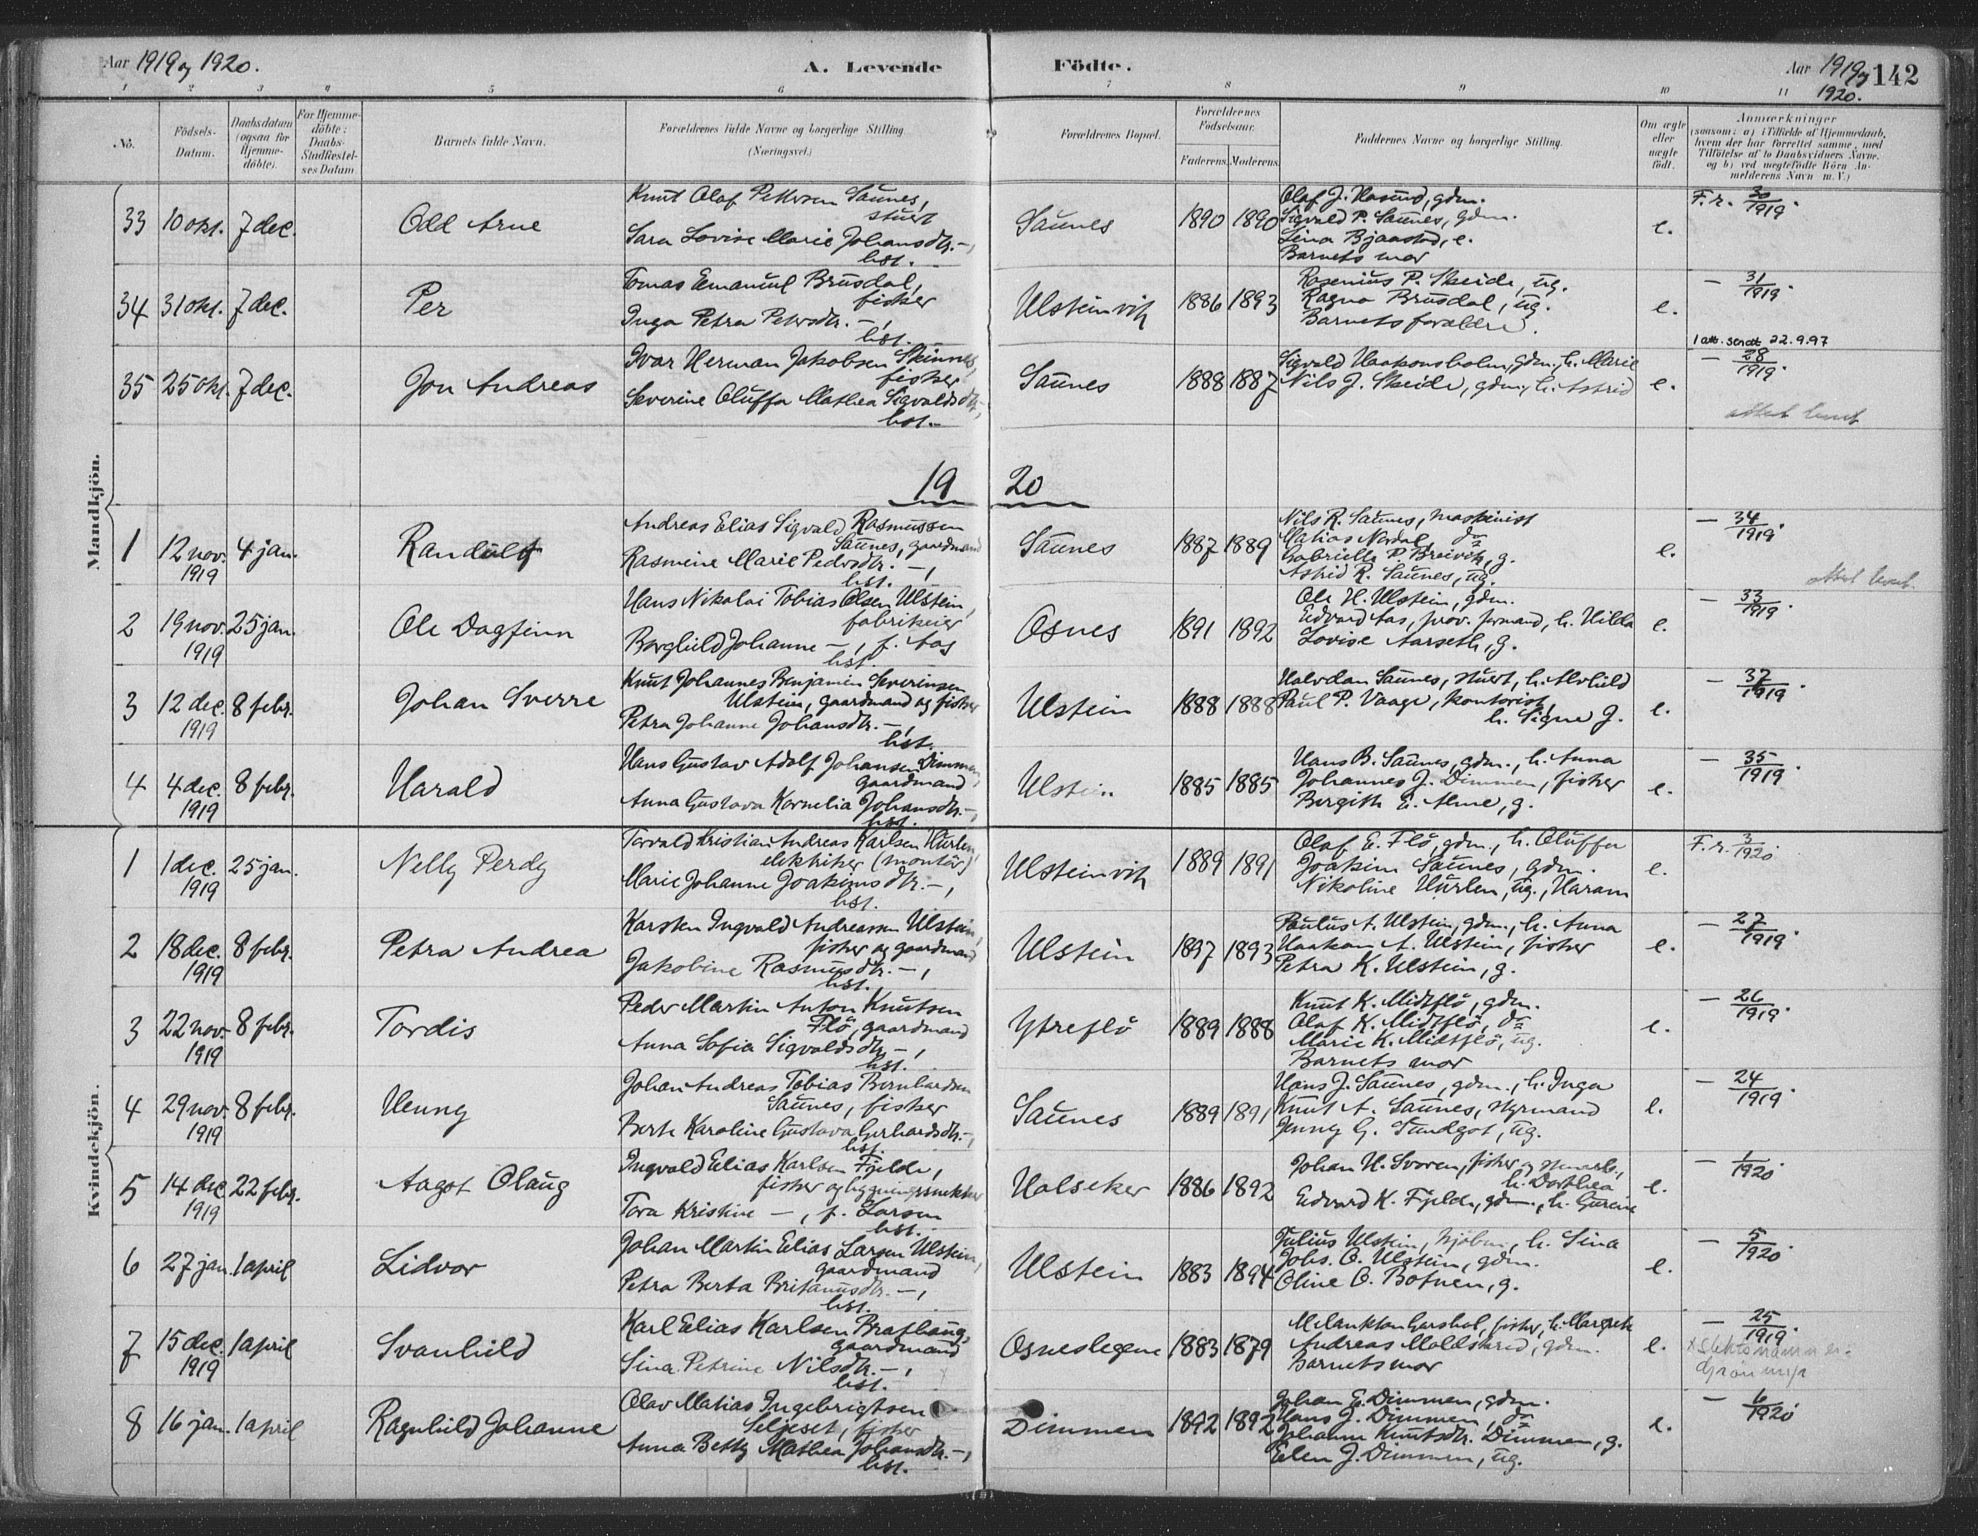 Aar 1919 og 1920.
A. Levende Födte.
Aar 1919 og 1920.
142
1 2 3 4 5 6 7 8 9 10 11
No.
Födsels-Datum.
Daabsdatum (ogsaa for Hjemme-döbte).
For Hjemme-döbte: Daabs-Stadfæstel-ses Datum
Barnets fulde Navn.
Forældrenes fulde Navne og borgerlige Stilling. (Næringsvei.)
Forældrenes Bopæl.
Forældrenes Födselsaar.
Faderens. Moderens.
Faddernes Navne og borgerlige Stilling.
Om ægte eller uægte födt.
Anmærkninger
(saasom: a) i Tilfælde af Hjemmedaab, hvem der har forrettet samme, med Tilföielse af to Daabsvidners Navne, og b) ved uegtefödte Börn An-melderens Navn m. V.)
Mandkjön.
33 10 okt. 7 dec. Odd Arne
Knut Olaf Pettersen Saunes,
stuert
Sara Lovise Marie Johansdtr. —,
hst.
Saunes 1890 1890
Olaf J. Hasund, gdm.
Sigvald P. Saunes, gdm.
Lina Bjaastad, e.
Barnets mor
e. F.r. 30/1919.
34 31 okt. 7 dec. Per
Tomas Emanuel Brusdal,
fisker
Inga Petra Petersdtr. —,
hst.
Ulsteinvik 1886 1893
Rasenius P. Skeide, ug.
Ragna Brusdal, ug.
Barnets forældre.
e. — 31/1919.
1 att. sendt 22.9.97
35 25 okt. 7 dec. Jon Andreas
Ivar Herman Jakobsen Skinnes,
fisker
Severine Oluffa Mathea Sigvaldsdtr. —,
hst.
Saunes 1888 1887
Sigvald Haakonsholm, gdm., h. Marie
Nils J. Skeide, gdm., h. Astrid
e. — 28/1919.
19 20
1 12 nov. 1919 4 jan. Randulf
Andreas Elias Sigvald Rasmussen
Saunes, gaardmand
Rasmine Marie Pedersdtr. —,
hst.
Saunes 1887 1889
Nils R. Saunes, maskinist
Matias Nordal, do
Gabrielle P. Breivik, g.
Astrid R. Saunes, ug.
e. — 34/1919.
2 19 nov. 1919 25 jan. Ole Dagfinn
Hans Nikolai Tobias Olsen Ulstein,
fabrikeier
Borghild Johanne —, f. Aas
hst.
Osnes 1891 1892
Ole H. Ulstein, gdm.
Edvard Aas, prov. formand, h. Hilda
Lovise Aarseth, g.
e. — 33/1919.
3 12 dec. 1919 8 febr. Johan Sverre
Knut Johannes Benjamin Severinsen
Ulstein, gaardmand og fisker
Petra Johanne Johansdtr. —,
hst.
Ulstein 1888 1888
Halvdan Saunes, stuert, h. Alvhild
Paul P. Vaage, kontorist,
h. Signe J.
e. — 37/1919.
4 4 dec. 1919 8 febr. Harald
Hans Gustav Adolf Johansen Dimmen,
gaardmand
Anna Gustava Kornelia Johansdtr. —,
hst.
Ulstein 1885 1885
Hans B. Saunes, gdm., h. Anna
Johannes J. Dimmen, fisker
Bergith E. Alme, g.
e. — 35/1919.
Kvindekjön.
1 1 dec. 1919 25 jan. Nelly Perdy
Torvald Kristian Andreas Karlsen Hurlen,
elektriker (montör)
Marie Johanne Joakimsdtr. —,
hst.
Ulsteinvik 1889 1891
Olaf E. Flö, gdm., h. Oluffa
Joakim Saunes, gdm.
Nikoline Hurlen, ug., Haram
e. F.r. 3/1920.
2 18 dec. 1919 8 febr. Petra Andrea
Karsten Ingvald Andreassen Ulstein,
fisker og gaardmand
Jakobine Rasmusdtr. —,
hst.
Ulstein 1897 1893
Paulus A. Ulstein, gdm., h. Anna
Haakon A. Ulstein, fisker
Petra K. Ulstein, g.
e. — 27/1919.
3 22 nov. 1919 8 febr. Tordis
Peder Martin Anton Knutsen
Flö, gaardmand
Anna Sofie Sigvaldsdtr. —,
hst.
Ytreflö 1889 1888
Knut K. Midtflö, gdm.
Olaf K. Midtflö, do
Marie K. Midtflö, ug.
Barnets mor
e. — 26/1919.
4 29 nov. 1919 8 febr. Henny
Johan Andreas Tobias Bernhardsen
Saunes, fisker
Berte Karoline Gustava Gerhardsdtr. —,
hst.
Saunes 1889 1891
Hans J. Saunes, gdm., h. Inga
Knut A. Saunes, styrmand
Jenny G. Sundgot, ug.
e. — 24/1919.
5 14 dec. 1919 22 febr. Aagot Olaug
Ingvald Elias Karlsen Fjelde,
fisker og bygningssnekker
Tora Kristine —, f. Larsen
hst.
Halseker 1886 1892
Johan H. Svoren, fisker og
h. Dorthea
Edvard K. Fjelde, gdm., h. Gurine
e. — 1/1920.
6 27 jan. 1 april Lidvor
Johan Martin Elias Larsen Ulstein,
gaardmand
Petra Berta Britanusdtr. —,
hst.
Ulstein 1883 1894
Julius Ulstein, kjöbm., h. Sina
Johs. O. Ulstein, gdm.
Oline O. Botnen, g.
e. — 5/1920.
7 15 dec. 1919 1 april Svanhild
Karl Elias Karlsen Brathaug,
gaardmand
Sina Petrine Nilsdtr. —,
hst.
Osneslegene 1883 1879
Milankton Garshol, fisker, h. Margrete
Andreas Moldskred, gdm.
Barnets mor
e. — 25/1919.
8 16 jan. 1 april Ragnhild Johanne
Olav Matias Ingebrigtsen
Seljeset, fisker
Anna Betty Mathea Johansdtr. —,
hst.
Dimmen 1892 1892
Johan E. Dimmen, gdm.
Hans J. Dimmen, do
Johanne Knutsdtr. Dimmen, g.
Elen J. Dimmen, ug.
e. — 6/1920